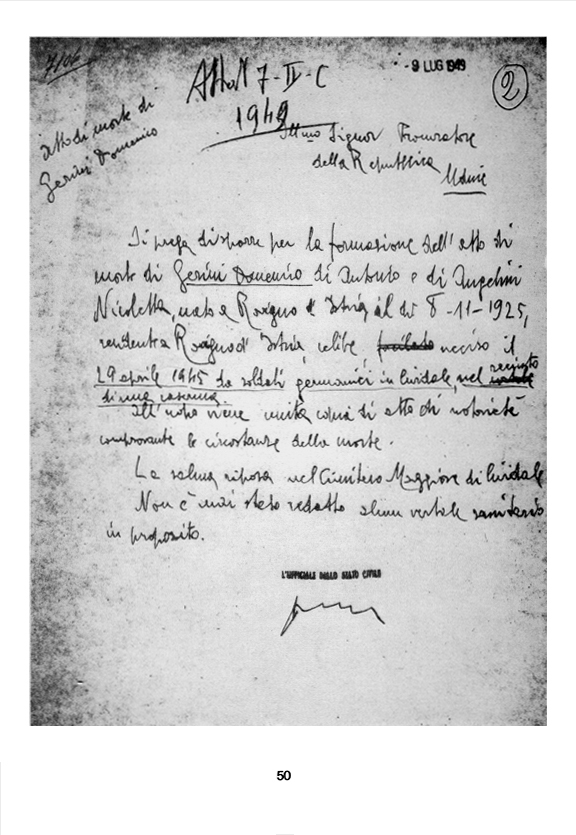 7106
Atto N 7-II-C
1949
- 9 LUG 1949
2
atto di morte di
Gerini Domenico
Ill.mo Signor Procuratore
della Repubblica
Udine
Si prega disporre per la formazione dell'atto di
morte di Gerini Domenico di Antonio e di Angelini
Nicoletta, nato a Rovigno d'Istria il dì 8-11-1925,
residente a Rovigno d'Istria, celibe, fucilato ucciso il
29 aprile 1945 da soldati germanici in Cividale, nel recinto
di una caserma.
All'uopo viene unita copia di atto di notorietà
comprovante le circostanze della morte.
La salma riposa nel Cimitero Maggiore di Cividale
Non è mai stato redatto alcun verbale sanitario
in proposito.
L'UFFICIALE DELLO STATO CIVILE
50